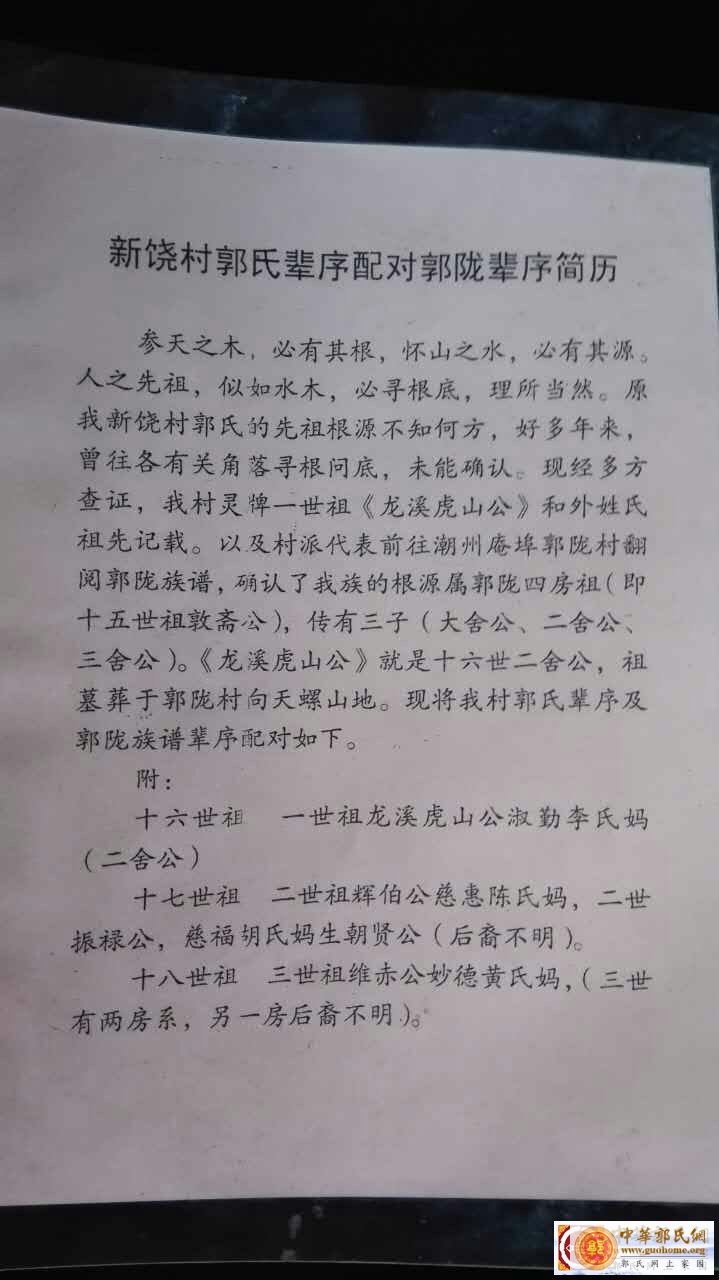 新饶村郭氏辈序配对郭陇辈序简历
参天之木，必有其根，怀山之水，必有其源。
人之先祖，似如水木，必寻根底，理所当然。原
我新饶村郭氏的先祖根源不知何方，好多年来，
曾往各有关角落寻根问底，未能确认。现经多方
查证，我村灵牌一世祖《龙溪虎山公》和外姓氏
祖先记载。以及村派代表前往潮州庵埠郭陇村翻
阅郭陇族谱，确认了我族的根源属郭陇四房祖（即
十五世祖敦斋公），传有三子（大舍公、二舍公、
三舍公）。《龙溪虎山公》就是十六世二舍公，祖
墓葬于郭陇村向天螺山地。现将我村郭氏辈序及
郭陇族谱辈序配对如下。
附：
十六世祖 一世祖龙溪虎山公淑勤李氏妈
（二舍公）
十七世祖 二世祖辉伯公慈惠陈氏妈，二世
振禄公，慈福胡氏妈生朝贤公（后裔不明）。
十八世祖 三世祖维赤公妙德黄氏妈，（三世
有两房系，另一房后裔不明）。
中華郭氏網
www.guohome.org
郭氏网上家园